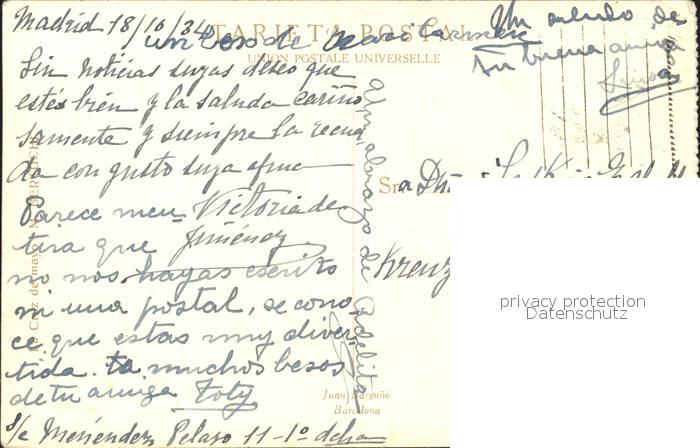 Madrid 18/10/34
TARJETA POSTAL
UNION POSTALE UNIVERSELLE
un beso de Mari Carmen
Un saludo de
tu buena amiga
Luisa
Sin noticias suyas deseo que
estés bien y la saluda cariño
samente y siempre la recue
da con gusto suya afma
Victoria de
Jiménez
Parece men=
tira que
no nos hayas escrito
ni una postal, se cono
ce que estas muy diver
tida. ta muchos besos
de tu amiga Toty
s/c Menéndez Pelayo 11-1º dcha
un abrazo de Adelita
Sra Dña
Kreuz
La Cruz de mayo
Juan Barguñó
Barcelona
privacy protection
Datenschutz